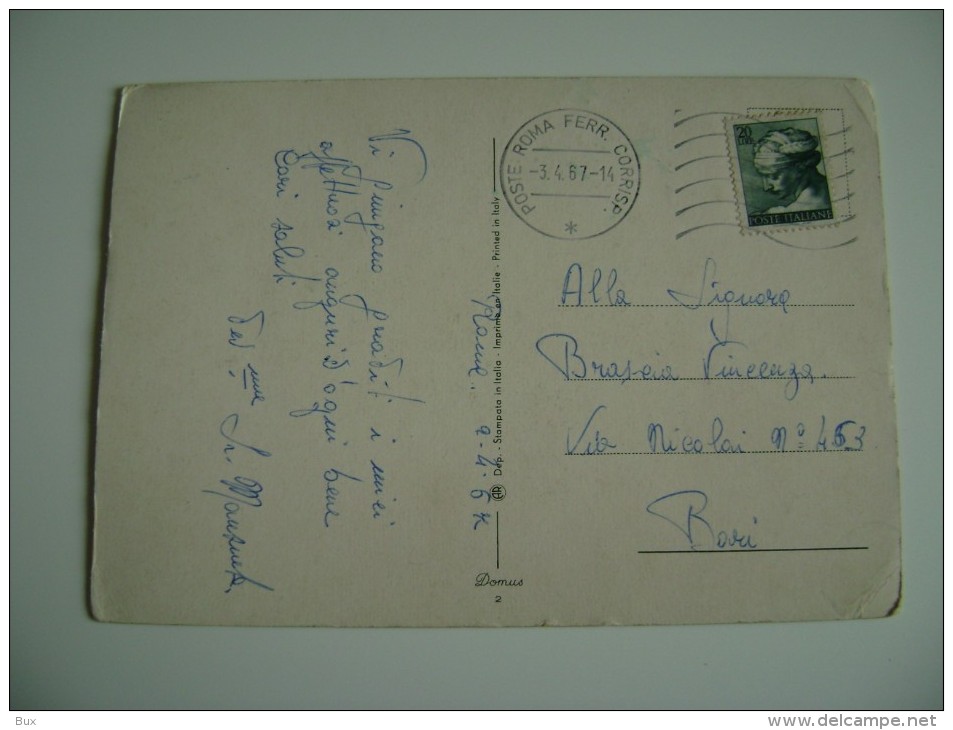 Vi giungano graditi i miei
affettuosi auguri d'ogni bene
Cari saluti
Sr.
Roma. 2-4-67
AR Dep. - Stampata in Italia - Imprimé en Italie - Printed in Italy
Domus
2
POSTE ROMA FERR. CORRISP.
-3.4.67-14
*
20
LIRE
POSTE ITALIANE
Alla Signora
Brascia Vincenza.
Via Nicolai N° 453
Bari
Bux
www.delcampe.net